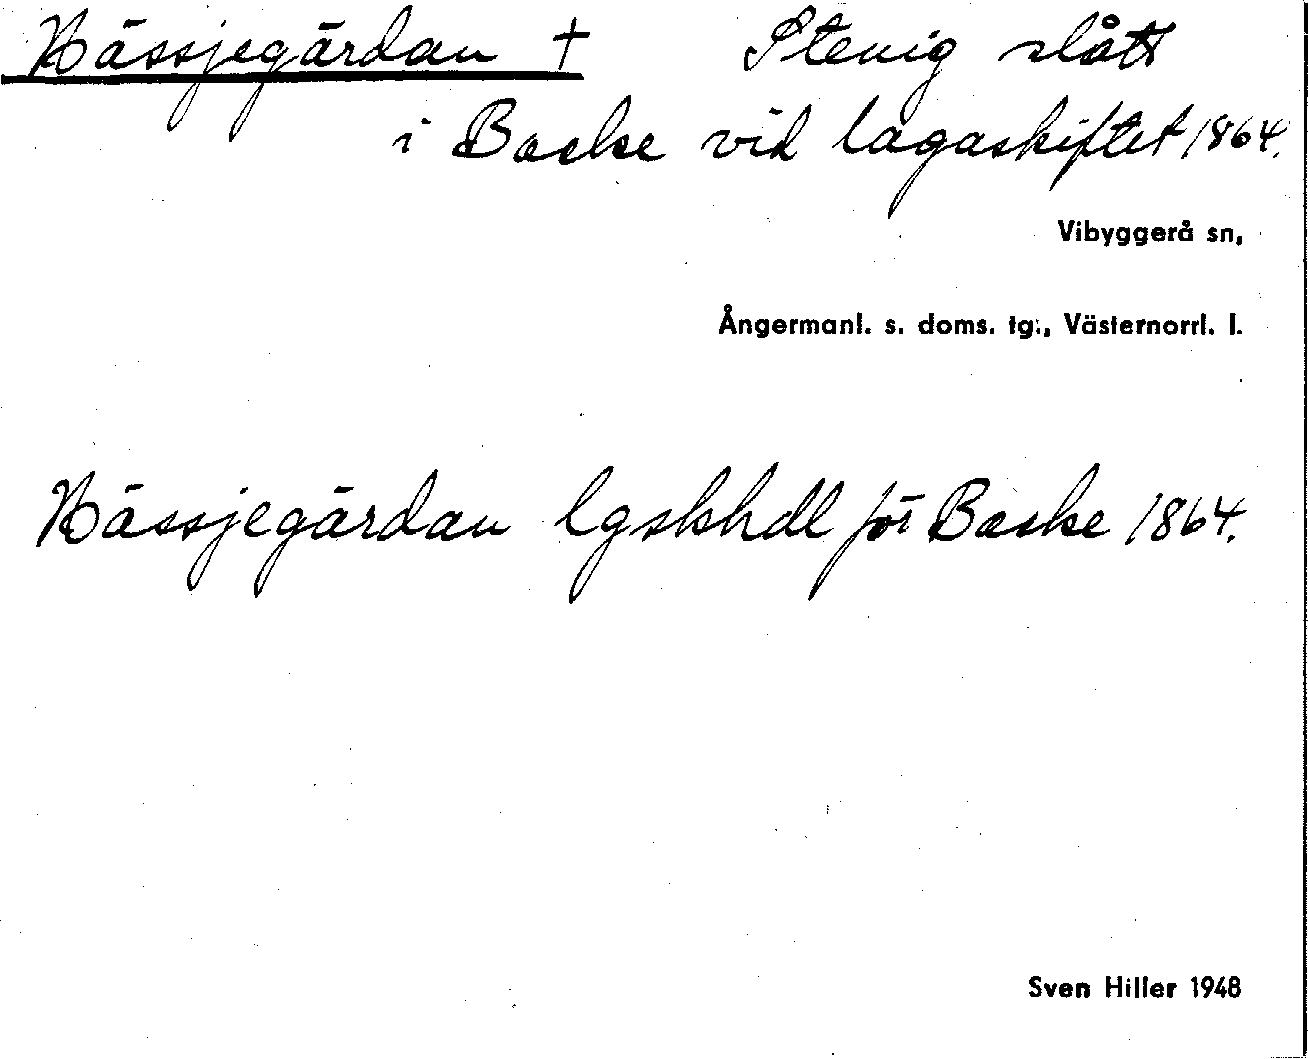 Hässjegärdan † Stenig slått
i Baske vid lagaskiftet 1864.
Vibyggerå sn,
Ångermanl. s. doms. tg., Västernorrl. l.
Hässjegärdan lgskhdl för Baske 1864.
Sven Hiller 1948